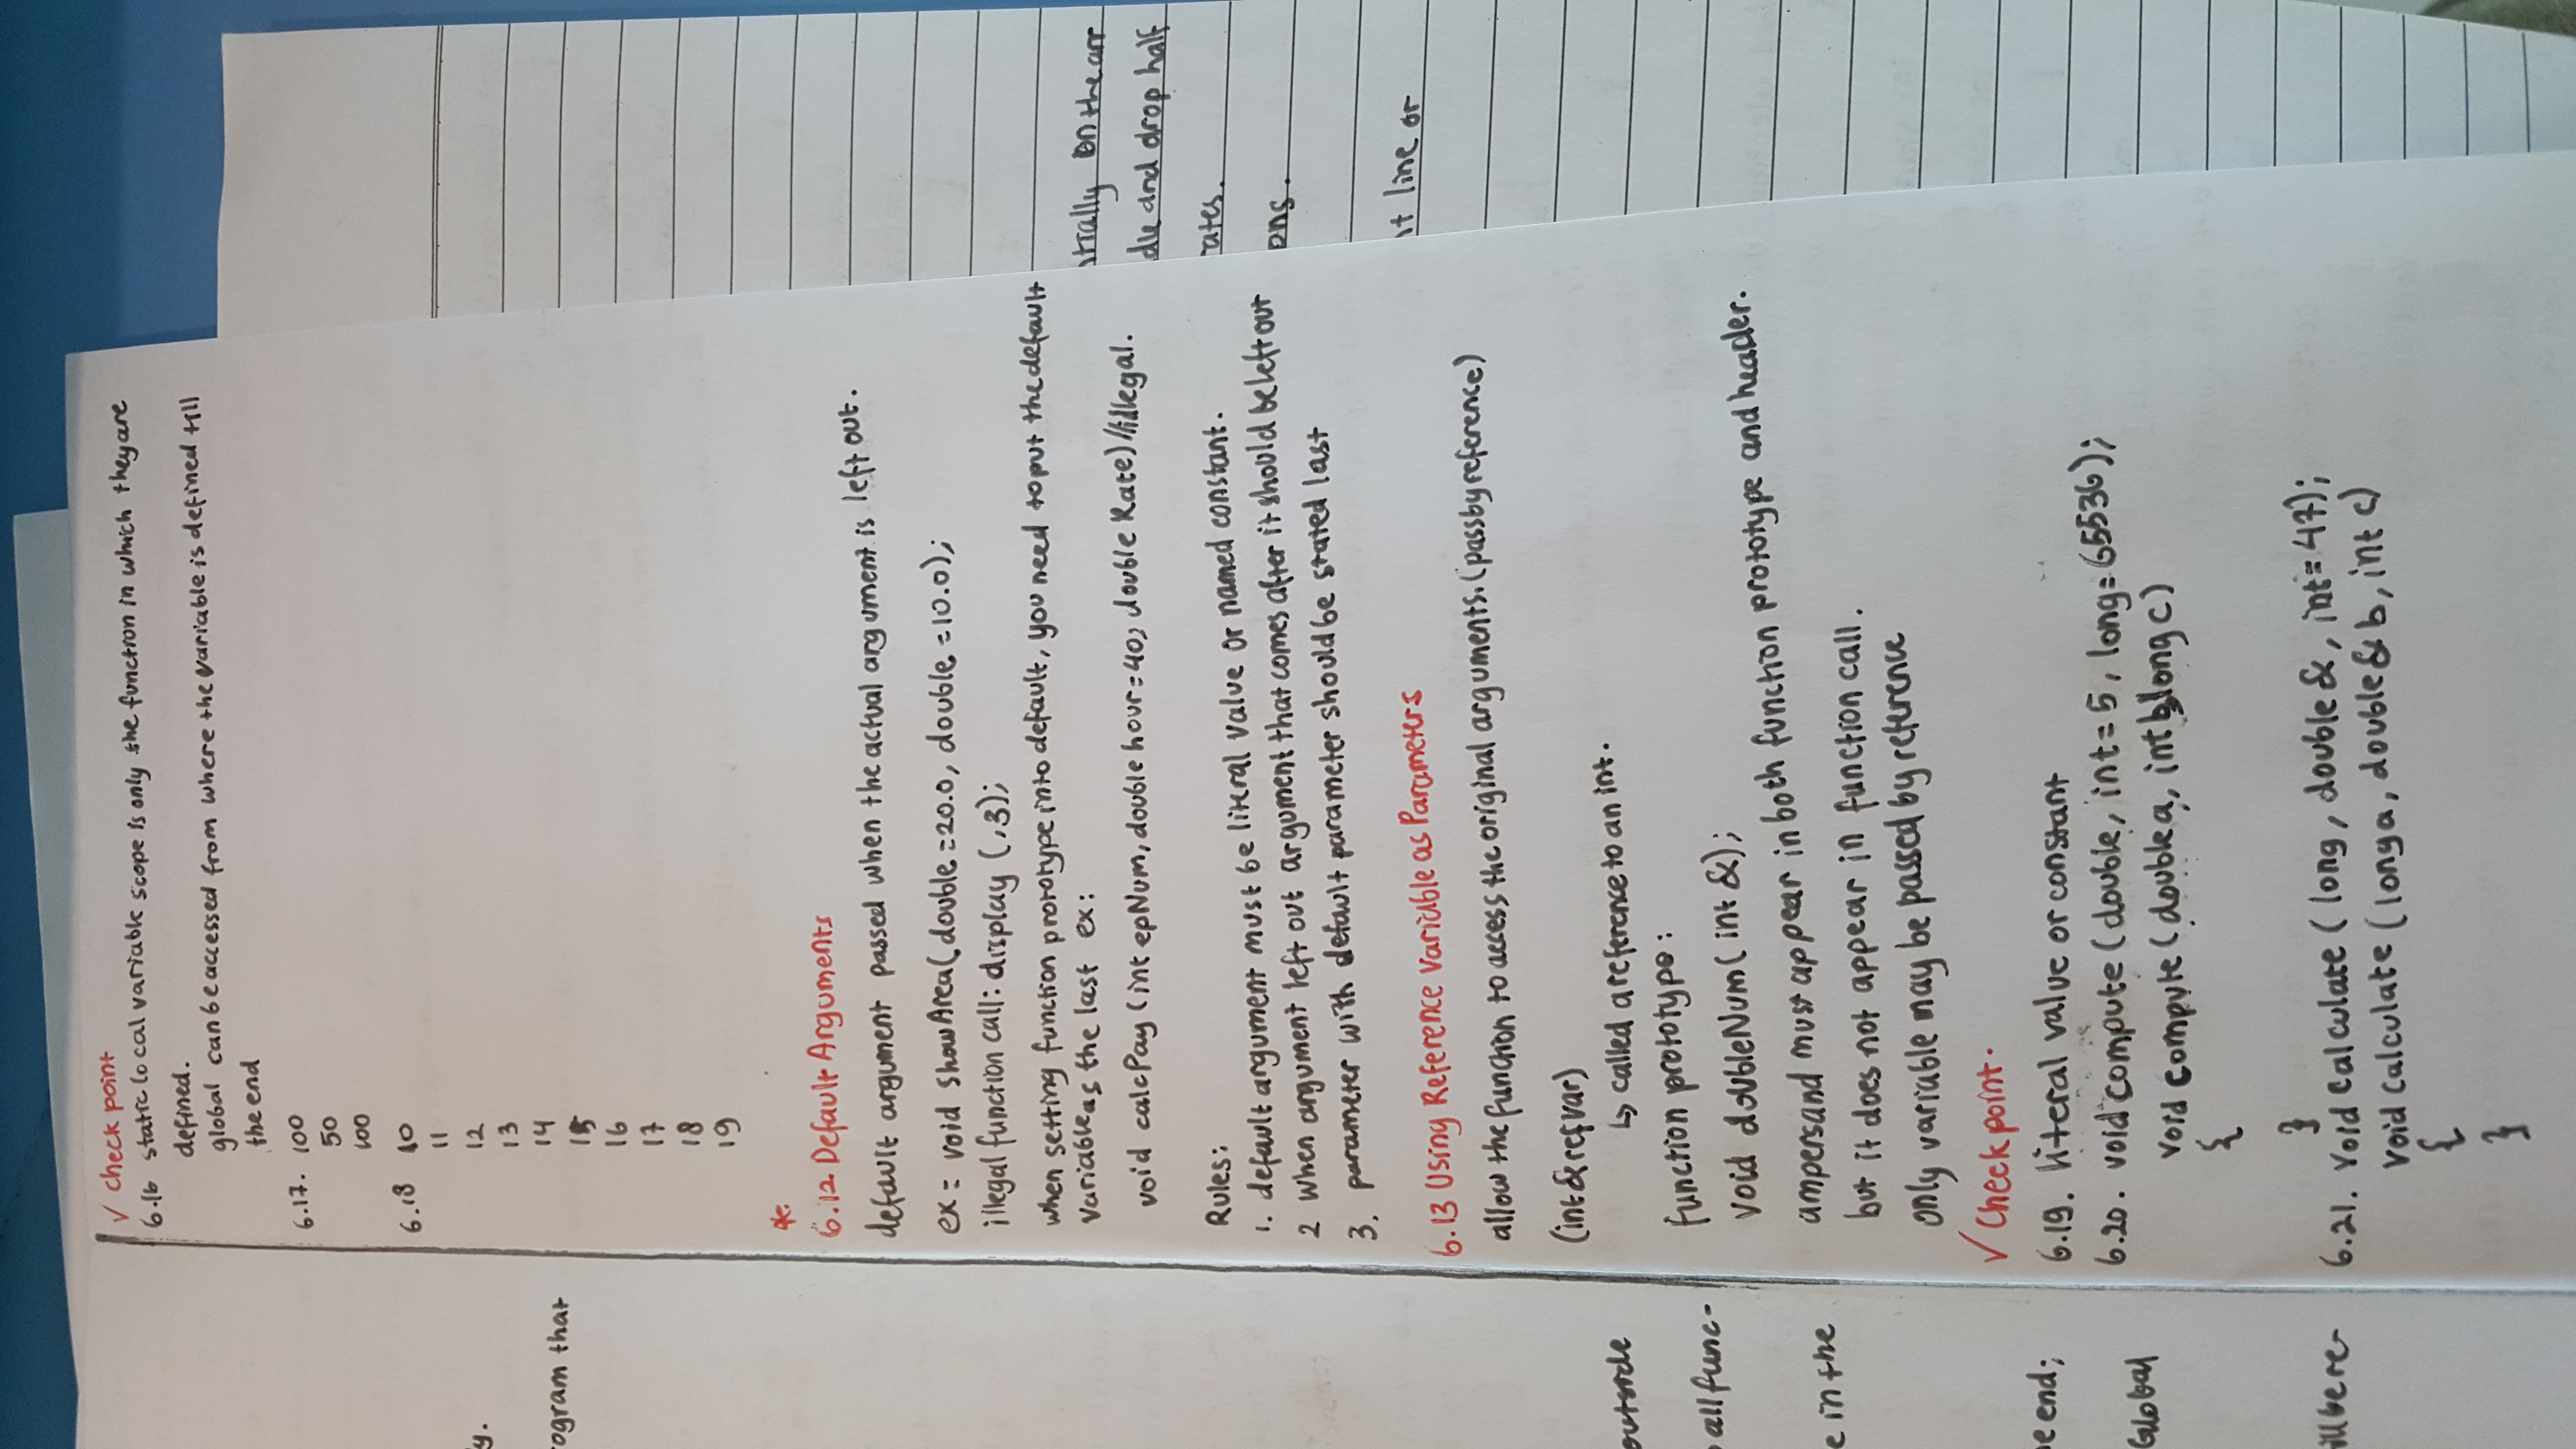 y.
ogram that
outside
all func-
e in the
e end;
Global
ill be re-
✓ check point
6.16 static local variable scope is only the function in which they are
defined.
global can be accessed from where the variable is defined till
the end
6.17. 100
50
100
6.18 10
11
12
13
14
15
16
17
18
19
*
6.12 Default Arguments
default argument passed when the actual argument is left out.
ex = void showArea(double=20.0, double=10.0);
illegal function call: display (,3);
when setting function prototype into default, you need to put the default
variable as the last ex:
void calcPay (int epNum, double hour=40, double Rate) //illegal.
Rules:
1. default argument must be literal value or named constant.
2 When argument left out argument that comes after it should be left out
3. parameter with default parameter should be stated last
6.13 Using Reference Variable as Parameters
allow the function to access the original arguments. (pass by reference)
(int & refvar)
↳ called a reference to an int.
function prototype:
void doubleNum( int &);
ampersand must appear in both function prototype and header.
but it does not appear in function call.
only variable may be passed by reference
✓ Checkpoint.
6.19. literal value or constant
6.20. void compute (double, int=5, long=65536);
void compute (double a, int b, long c)
{
}
6.21. void calculate (long, double &, int=47);
void calculate (long a, double & b, int c)
{
}
ntially on the arr
dle and drop half
ates.
ons.
nt line or